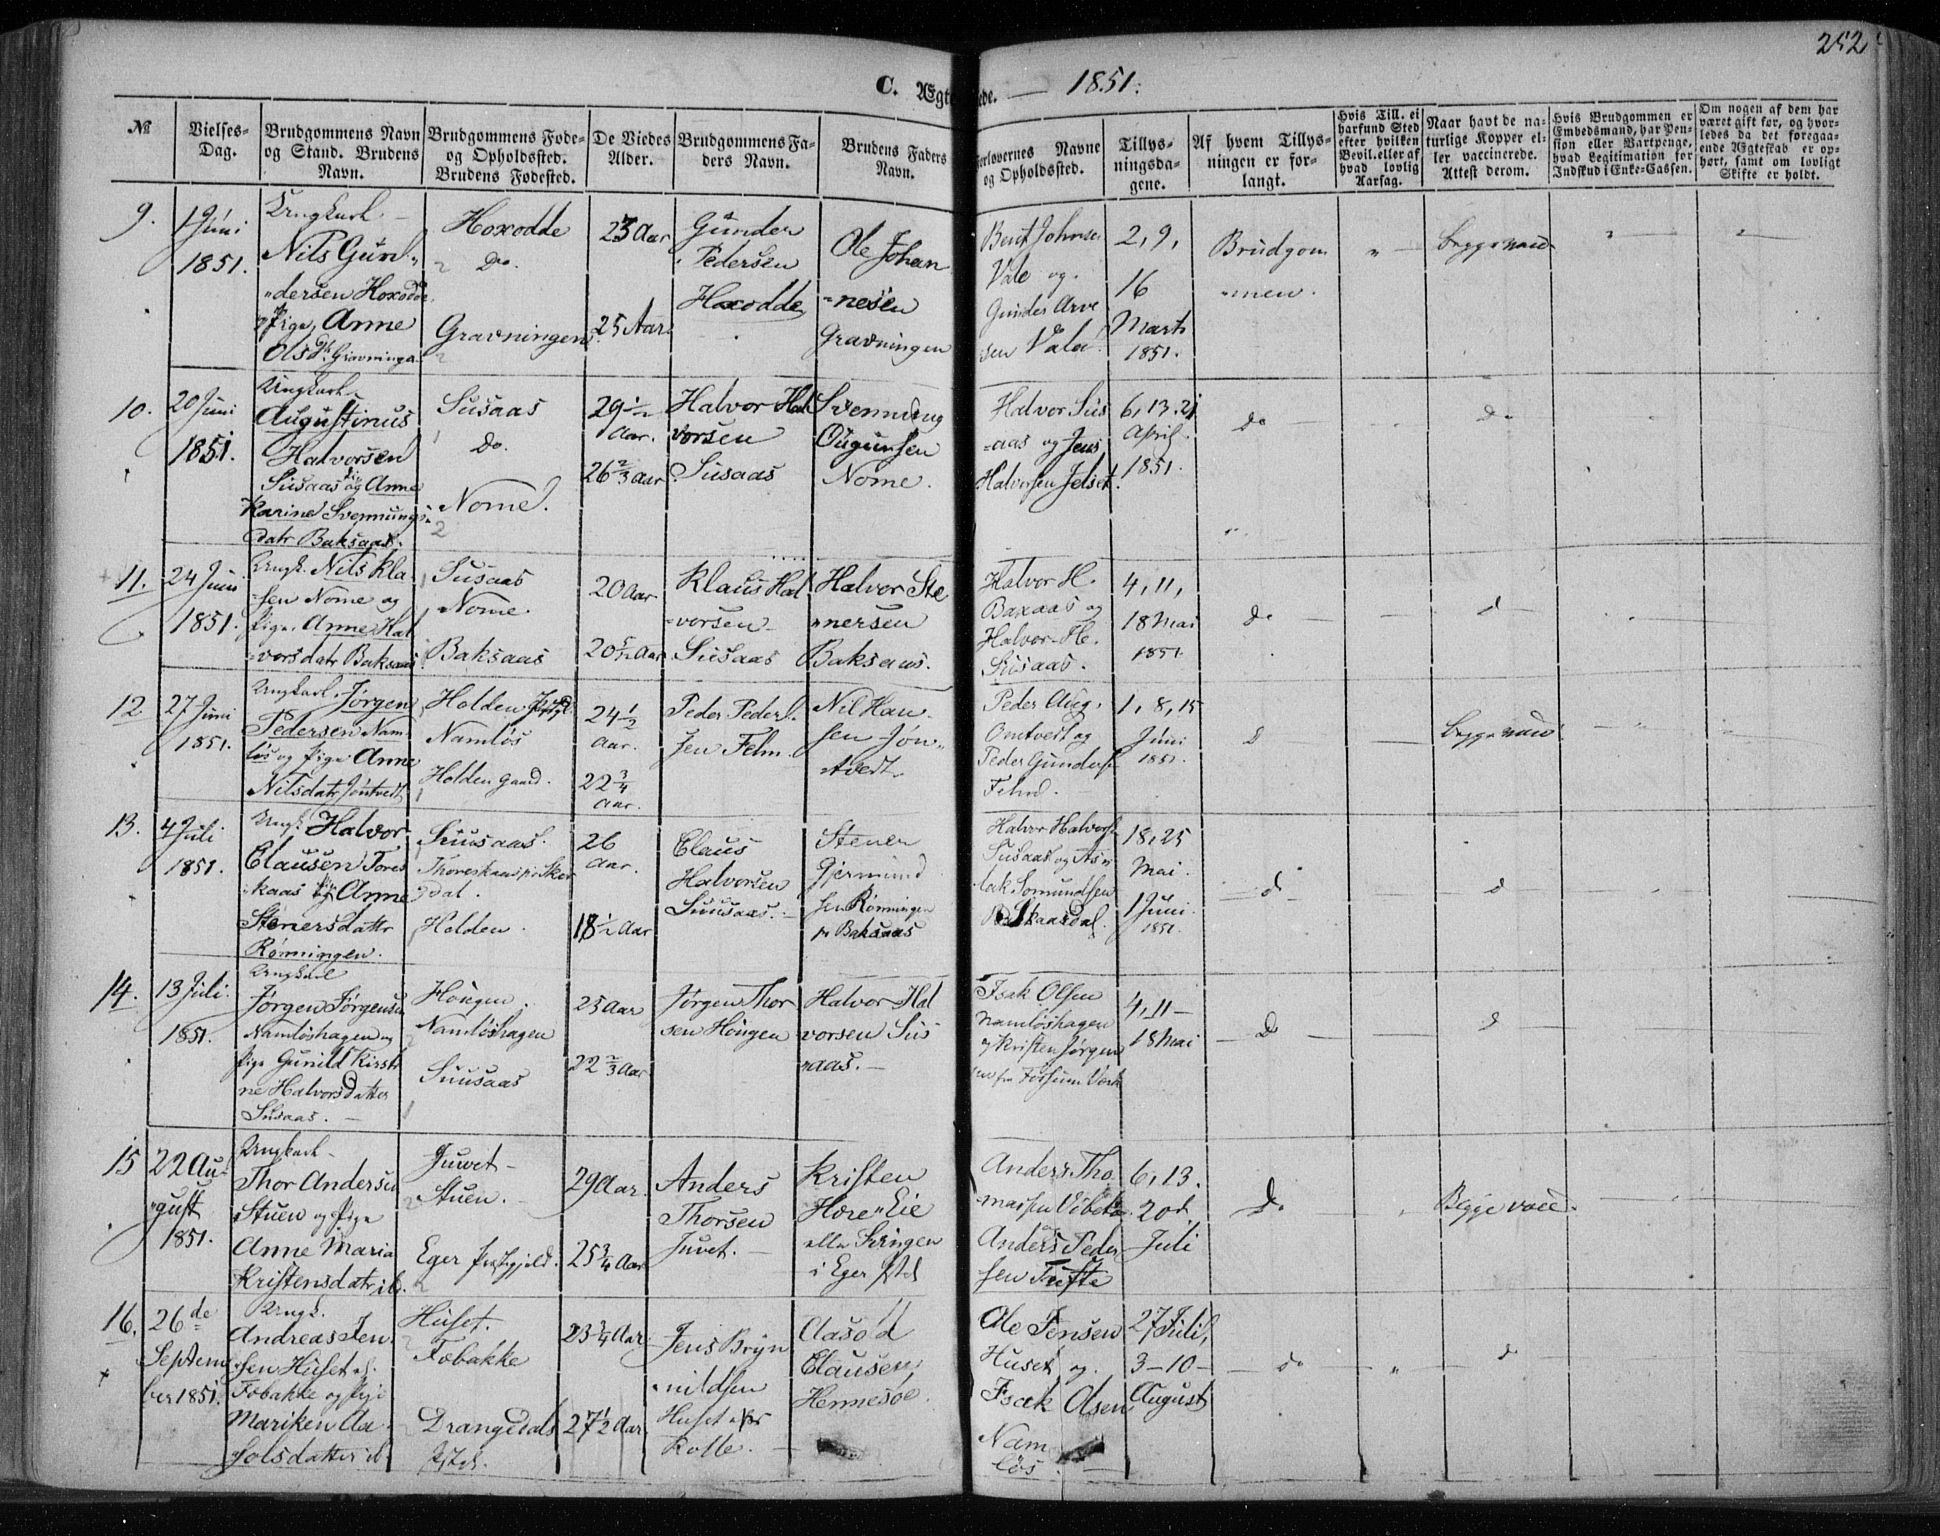 252
C. Ægte de. — 1851.
№
Vielses-Dag.
Brudgommens Navn og Stand. Brudens Navn.
Brudgommens Føde- og Opholdssted. Brudens Fødested.
De Viedes Alder.
Brudgommens Faders Navn.
Brudens Faders Navn.
Forlovernes Navne og Opholdssted.
Tillysningsdagene.
Af hvem Tillysningen er forlangt.
Hvis Till. ei harfund Sted efter hvilken Bevil. eller af hvad lovlig Aarsag.
Naar havt de naturlige Kopper eller vaccinerede. Attest derom.
Hvis Brudgommen er Embedsmand, har Pension eller Vartpenge, hvad Legitimation for Indskud i Enke-Cassen.
Om nogen af dem har været gift før, og hvorledes da det foregaaende Ægteskab er ophørt, samt om lovligt Skifte er holdt.
9.
1 Juni
1851.
Ungkarl
Nils Gun-
dersen Hoxodde
Pige Anne
Olsd. Gravninga
Hoxodde
Do.
Gravningen
23 Aar
25 Aar
Gunder
Pedersen
Hoxodde
Ole Johan
nesen
Gravningen
Bent Johnse
Vale og
Gunder Arve
sen Vale
2, 9,
16
Marts
1851.
Brudgom
men.
begge vacc
10.
20 Juni
1851.
Ungkarl
Augustinus
Halvorsen
Susaas og Anne
Karine Svennungs
datr Baksaas.
Susaas
Do.
Nome.
29 ½
Aar.
26 ⅔ Aar
Halvor Hal
vorsen
Susaas
Svennung
Nome.
Halvor Sus
aas og Jens
Halvorsen Jelset.
6, 13. 21
April
1851.
do
do
11.
24 Juni
1851.
Ungk. Nils Kla
sen Nome og
Pige Anne Hal
vorsdatr Baksaas
Susaas
Nome.
Baksaas
20 Aar
Klaus Hal
vorsen
Susaas
Halvor Ste
nersen
Baksaas.
Halvor H.
Baxaas og
Halvor H.
Susaas.
4, 11,
18 Mai
1851
do
d
12
27 Juni
1851.
Ungkarl Jørgen
Pedersen Nam
løs og Pige Anne
Nilsdatr Jøntvedt
Holden
Namløs
Holden Gaard.
24 ½
Aar.
22 ¾
Aar.
Peder Peder
sen Felm
Nil Han
sen Jøn
tvedt
Peder Aug.
Omtvedt og
Peder Gunders
1, 8, 15
Juni
1851.
D
begge vacc
13.
4 Juli
1851.
Ungk. Halvor
Clausen Tores
kaas og Anne
Stenersdattr
Rønningen.
Suusaas.
dal.
Holden.
26
Aar.
18 ½ Aar
Claus
Halvorsen
Suusaas.
Stener
Gjermund
sen Rønningen
Baksaas
Halvor Halvors
Susaas og As
lak Somundsen
Skaardal
18, 25
Mai
1 Juni
1851.
d
d
14.
13 Juli
1851.
Ungkarl
Jørgen Jørgensen
Namløshagen
Pige Gunild Kirsti
ne Halvorsdatter
Susaas.
Hougen
Namløshagen
Suusaas
25 Aar
22 ⅔ Aar
Jørgen Thor
sen Hougen
Halvor Hal
vorsen Sus
aas.
Isak Olsen
Namløshagen
og Kristen Jørgen
Fossum Verk
4, 11
18 Mai
D
d
15
22 Au
gust
1851.
Ungkarl
Thor Andersen
Stuen og Pige
Anne Maria
Kristensdatr
Juvet
Stuen.
Eger Præstegjeld.
29 Aar.
25 ¾ Aar
Anders
Thorsen
Juvet.
Kristen
Hore Eie
eller
i Eger
Anders Tho
massen
Anders Peder
sen Tufte
6, 13.
20de
Juli
Do
Begge vacc.
16.
26de
Septem
ber 1851.
Ungk.
Andreas Jen
sen Huset
Fobakke og Pige
Mariken Aa
solsdatter
Huset.
Fobakke
Drangedals
23 ¾ Aar
27 ½ Aar
Jens Bryn
nildsen
Huset
Rolle.
Clausen
Ole Jensen
Huset og
Isak Olsen
Nam
løs.
27 Juli,
3 – 10 –
August
do
d